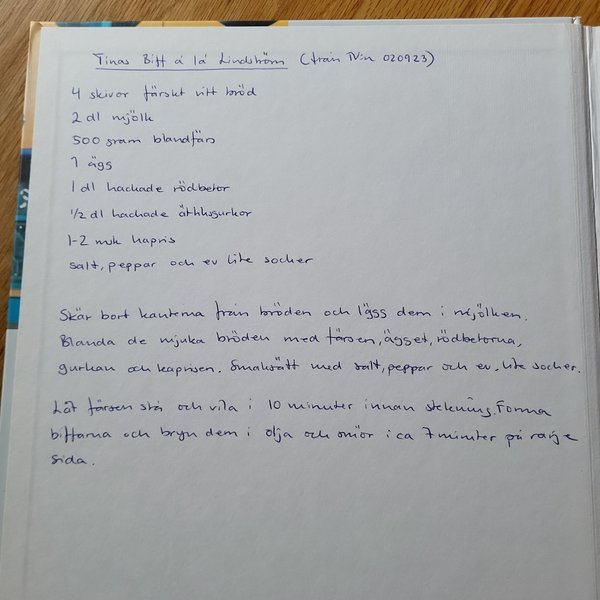 Tinas Biff á lá Lindström (från TV:n 020923)
4 skivor färskt vitt bröd
2 dl mjölk
500 gram blandfärs
1 ägg
1 dl hackade rödbetor
1/2 dl hackade ättiksgurkor
1-2 msk kapris
salt, peppar och ev lite socker
Skär bort kanterna från bröden och lägg dem i mjölken.
Blanda de mjuka bröden med färsen, ägget, rödbetorna,
gurkan och kaprisen. Smaksätt med salt, peppar och ev. lite socker.
Låt färsen stå och vila i 10 minuter innan stekning. Forma
biffarna och bryn dem i olja och smör i ca 7 minuter på varje
sida.